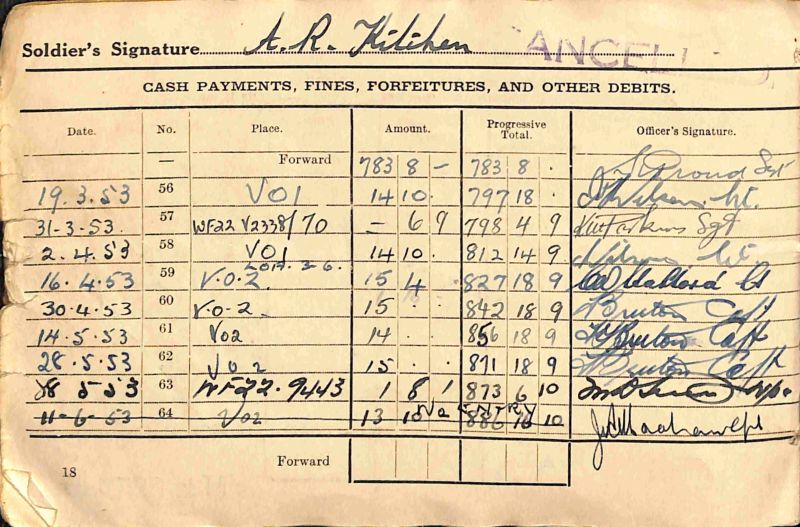 Soldier's Signature A. R. Kitchen ANCEL
CASH PAYMENTS, FINES, FORFEITURES, AND OTHER DEBITS.
Date. No. Place. Amount. Progressive Total. Officer's Signature.
— Forward 783 8 – 783 8 . Proud Sgt
19.3.53 56 V01 14 10. 797 18 . Wilson Lt.
31-3-53. 57 WF22 V2338/70 – 6 9 798 4 9 Sgt
2.4.53 58 V01 14 10. 812 14 9 Wilson Lt.
16.4.53 59 V.O.2. 15 4 827 18 9 Lt
30.4.53 60 V.O-2. 15 . 842 18 9 Bruton Capt
14.5.53 61 V02 14 . 856 18 9 Bruton Capt
28.5.53 62 V02 15 . . 871 18 9 Bruton Capt
28 5 53 63 WF22.9443 1 8 1 873 6 10
11-6-53 64 V02 13 10 886 16 10
18 Forward